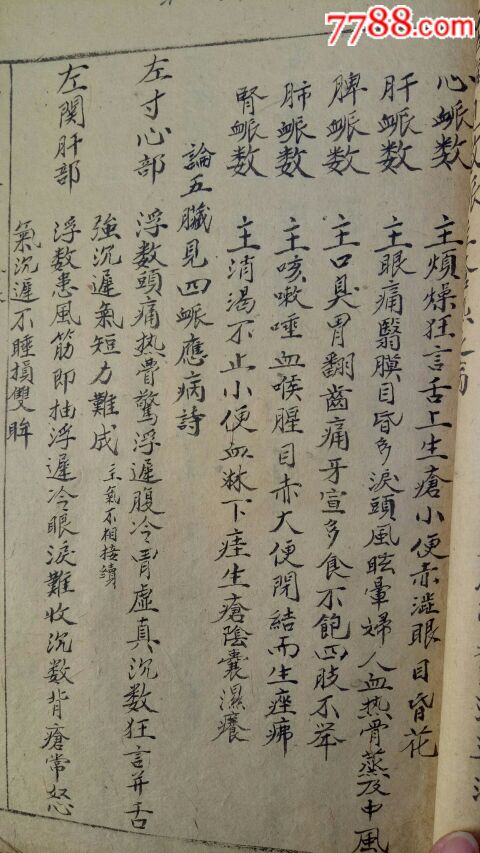 7788.com
心脈数 主煩燥狂言舌上生瘡小便赤澁眼目昏花
肝脈数 主眼痛翳膜目昏多淚頭風眩暈婦人血热骨蒸及中風
脾脈数 主口臭胃翻齒痛牙宣多食不飽四肢不举
肺脈数 主咳嗽唾血喉腥目赤大便閉結而生痤疿
腎脈数 主消渴不止小便血淋下疰生瘡陰囊濕癢
論五臟見四脈應病詩
左寸心部 浮数頭痛热骨驚浮遲腹冷胃虛真沉数狂言并舌
強沉遲氣短力難成 主氣不相接續
左関肝部 浮数患風筋即抽浮遲冷眼淚難收沉数背瘡常怒
氣沉遲不睡損雙眸